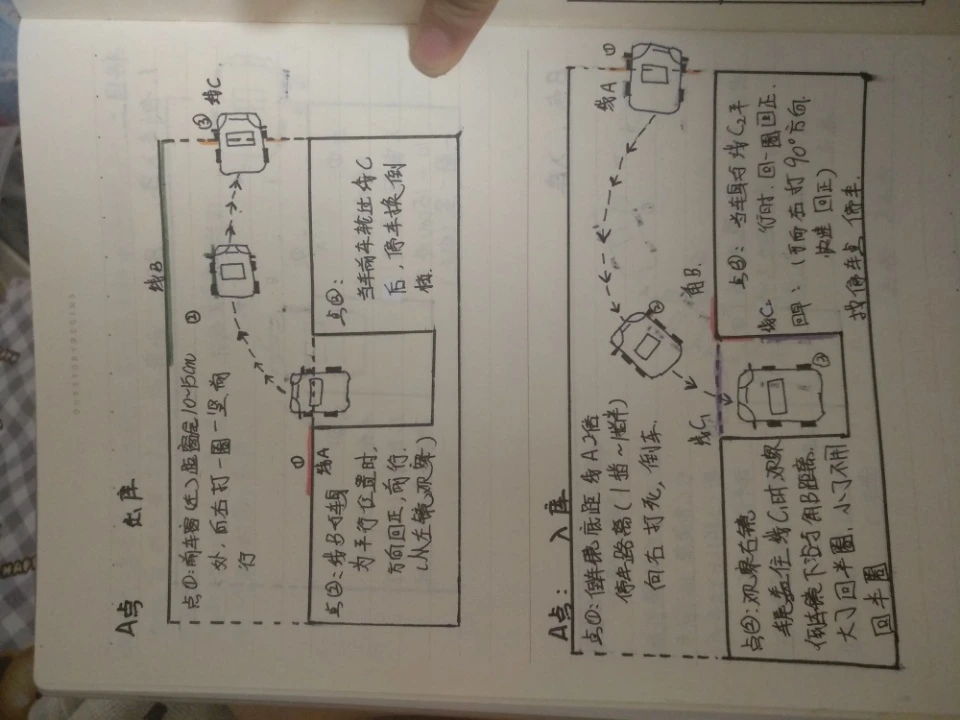 A点 出库
点①:前车窗(左)底窗底10~15cm
处,向右打一圈一竖前
行
②
线B
③
线C
①
线A
点②:线B与车身
为平行位置时,
方向回正,前行.
(从左镜观察)
点③:
当车前车轮过线C
后,停车换倒
档.
A点: 入库
点①:倒车镜底距线A2倍
停车距离(1档~
向右打死,倒车.
线A
①
②
角B.
线C1
线C2
③
点②:观察右镜
车轮盖住线C1时观察
倒车镜下沿与角B距离.
大了回半圈,小了不用
回半圈
点③:当车身与线C2平
行时.回一圈回正.
回早:(可向右打90°方向
快速回正)
找停车点,停车.